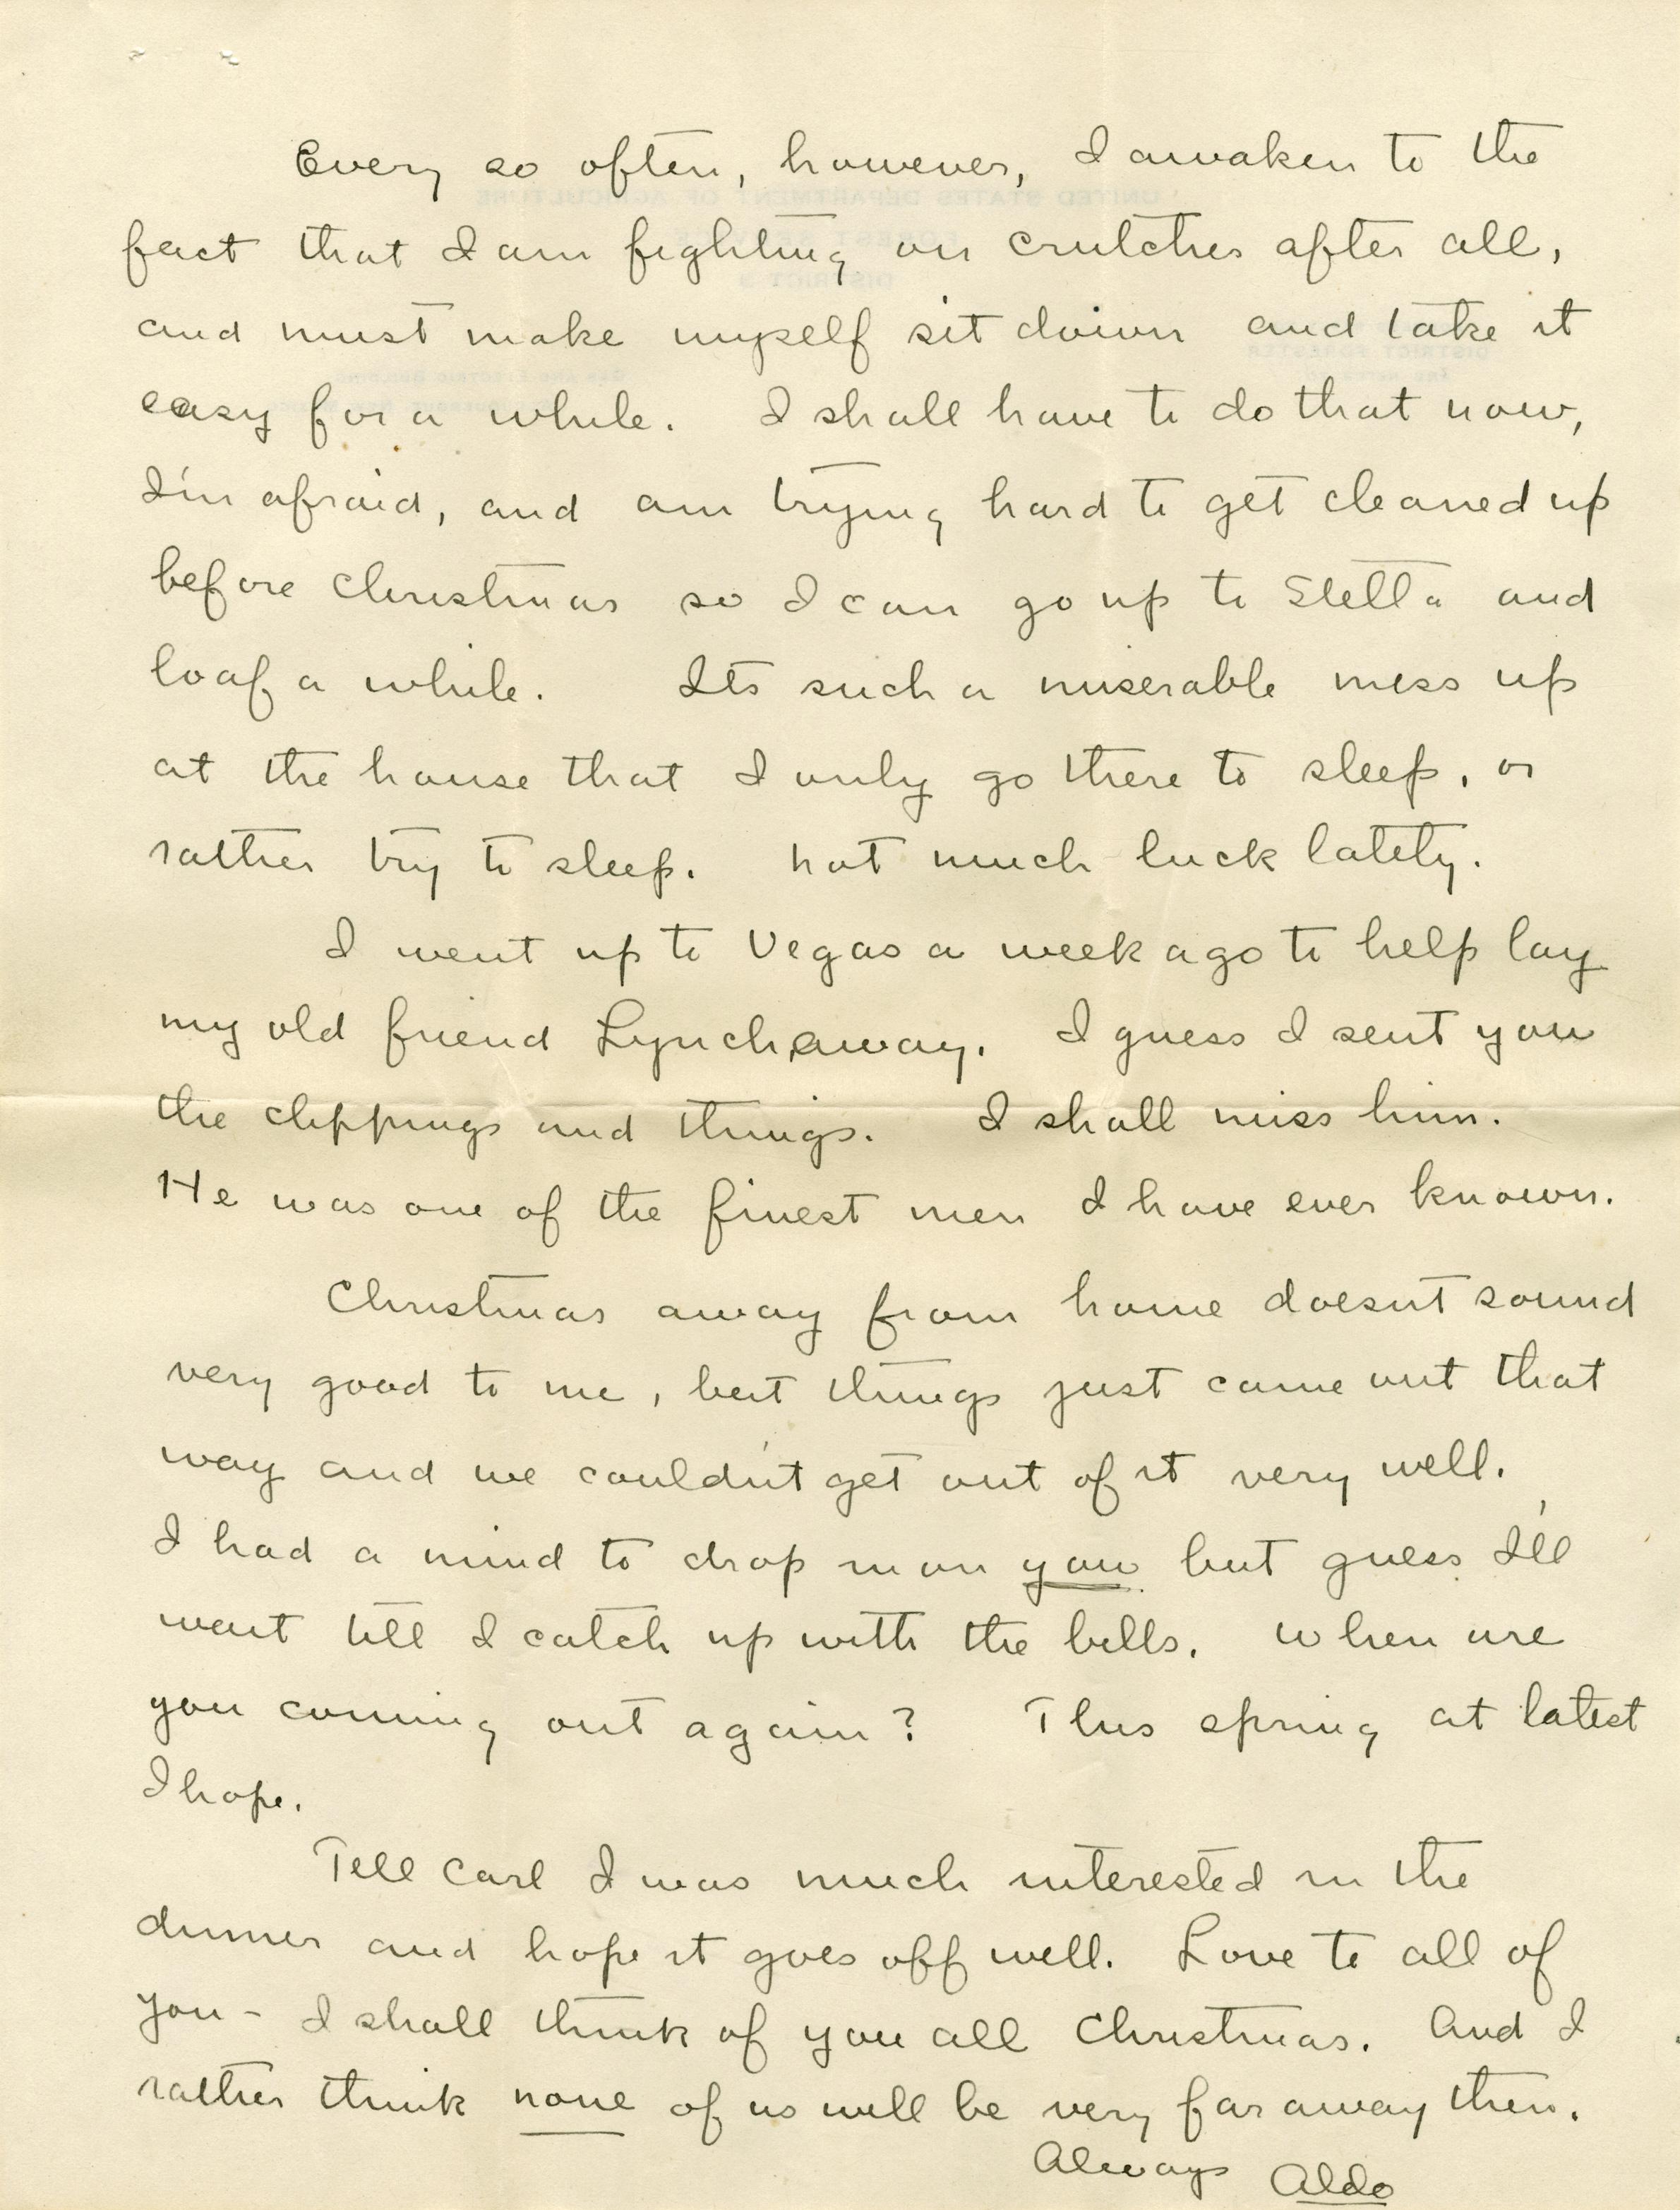 Every so often, however, I awaken to the
fact that I am fighting on crutches after all,
and must make myself sit down and take it
easy for a while. I shall have to do that now,
I'm afraid, and am trying hard to get cleaned up
before Christmas so I can go up to Stella and
loaf a while. Its such a miserable mess up
at the house that I only go there to sleep, or
rather try to sleep. Not much luck lately.
I went up to Vegas a week ago to help lay
my old friend Lynch away. I guess I sent you
the clippings and things. I shall miss him.
He was one of the finest men I have ever known.
Christmas away from home doesnt sound
very good to me, but things just came out that
way and we couldn't get out of it very well.
I had a mind to drop in on you but guess I'll
wait till I catch up with the bills. When are
you coming out again? This spring at latest
I hope.
Tell Carl I was much interested in the
dinner and hope it goes off well. Love to all of
you - I shall think of you all Christmas. And I
rather think none of us will be very far away then.
Always Aldo
UNITED STATES DEPARTMENT OF AGRICULTURE
FOREST SERVICE
DISTRICT 3
DISTRICT FORESTER